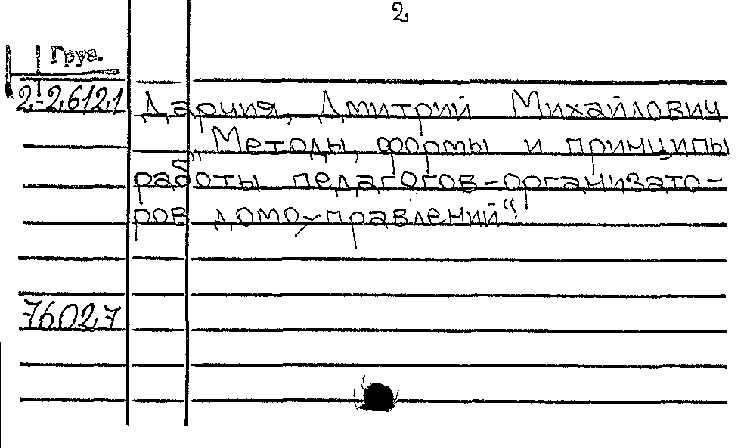 2
Груз.
2-26121
Дарчия, Дмитрий Михайлович
„Методы, формы и принципы
работы педагогов-организато-
ров домо-управлений“.
76027